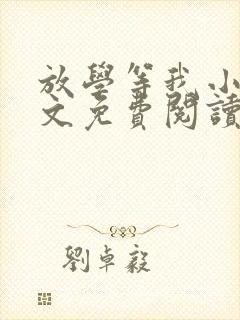 放學等我小
文免費閱讀
劉卓毅